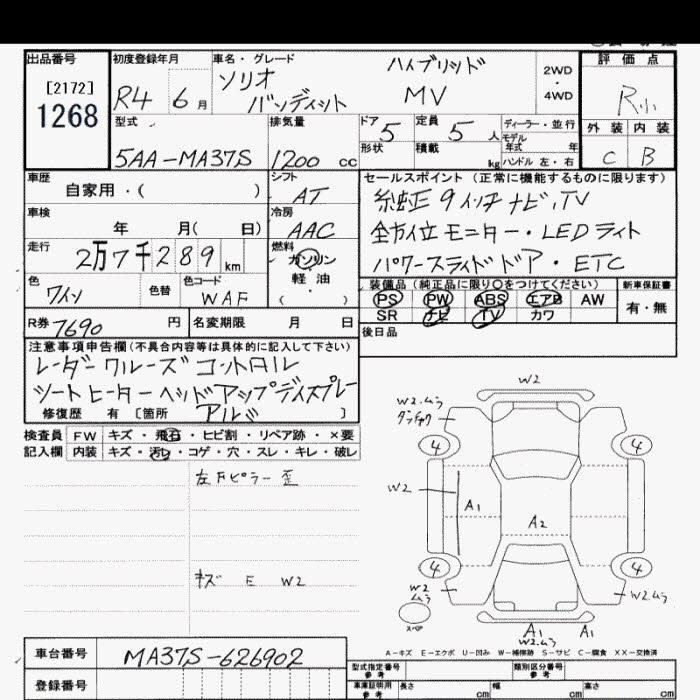 出品番号 初度登録年月 車名・グレード 評価点
[2172] 1268
R4 6月 ソリオ ハイブリッド 2WD・4WD
バンディット MV R小
型式 排気量 ドア 定員 ディーラー・並行 外装 内装
5AA-MA37S 1200cc 5 5人 モデル年式 年
形状 積載 kg ハンドル 左・右 C B
車歴 シフト セールスポイント(正常に機能するものに限ります)
自家用・( ) AT 純正9インチナビ、TV
車検 冷房
年 月( 日) AAC 全方位モニター・LEDライト
走行 燃料
2万7千289km ガソリン パワースライドドア・ETC
軽油
色 色替 色コード ・( ) 装備品(純正品に限り○をつけてください) 新車保証書
ワイン WAF PS PW ABS エアB AW 有・無
SR ナビ TV カワ
R券 7690円 名変期限 月 日 後日品
注意事項申告欄(不具合内容等は具体的に記入して下さい)
レーダークルーズコントロール
シートヒーターヘッドアップディスプレー
修復歴 有 [箇所 アルミ ]
検査員 FW キズ・飛石・ヒビ割・リペア跡・×要
記入欄 内装 キズ・汚れ・コゲ・穴・スレ・キレ・破レ
左Fピラー 歪
キズ E W2
W2
W2.ムラ
4 4
W2 A1 A2
4 4
W2 ムラ W2.ムラ
スペア A1 A1
W2.ムラ
A-キズ E-エクボ U-凹み W-補修跡 S-サビ C-腐食 XX-交換済
車台番号 MA37S-626902
型式指定番号 参考 類別区分番号 参考
登録番号 車庫証明用 参考 長さ cm 幅 cm 高さ cm